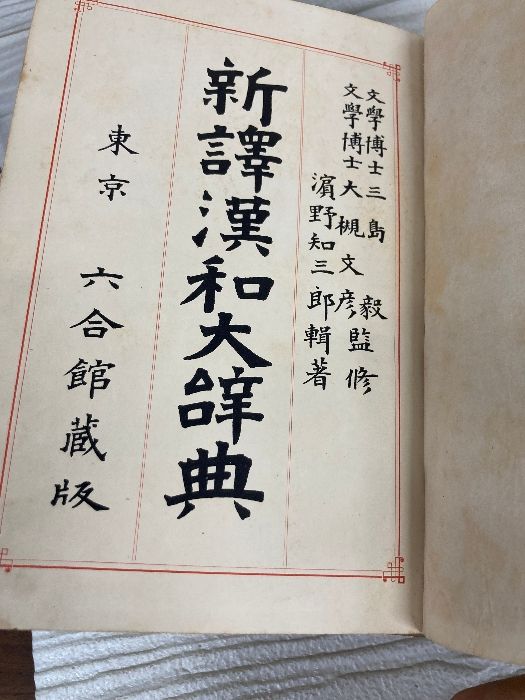 文學博士三島毅
文學博士大槻文彦監修
濵野知三郎輯著
新譯漢和大辝典
東京 六合館蔵版